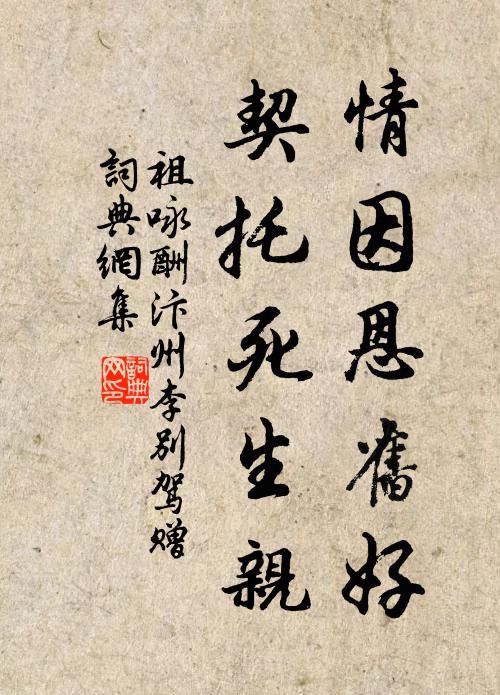 情因恩舊好
契托死生親
祖咏酬汴州李别駕贈
詞典網集
詞典